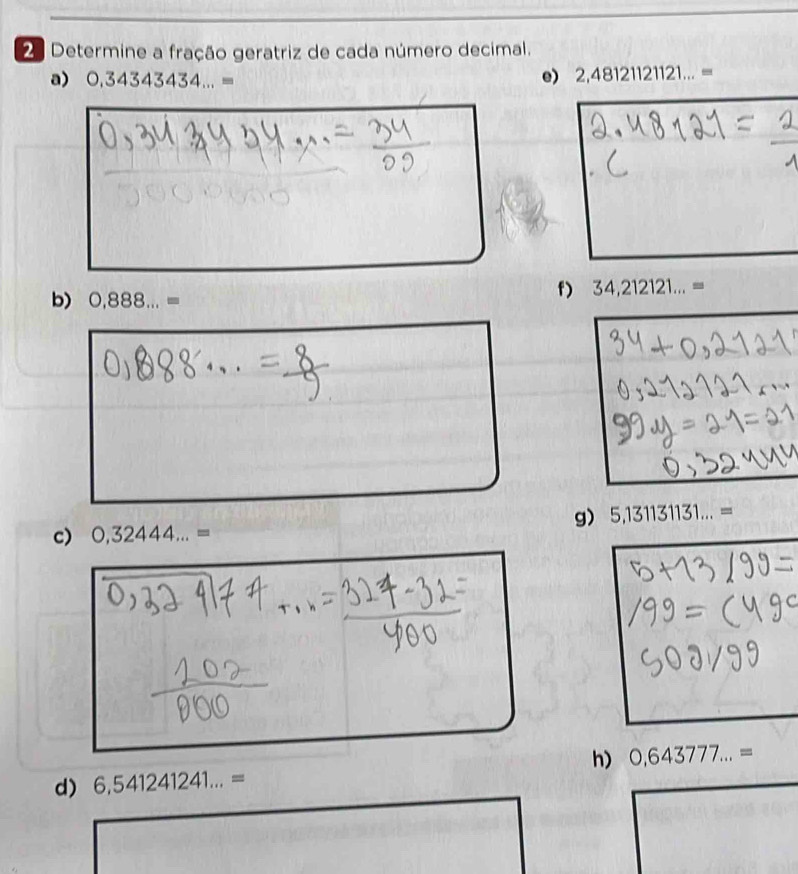 2 Determine a fração geratriz de cada número decimal.
a) 0,34343434... =
0,34 34 34 ... = 34/99
b) 0,888... =
0,888... = 8/9
c) 0,32444... =
= 324-32 =
/900
d) 6,541241241... =
e) 2,48121121121... =
2.48121 = 2
f) 34,212121... =
34 + 0,2121
0,212121...
99y = 21 = 21
0,32444
g) 5,131131131... =
5+13/99 =
/99 = (49
h) 0,643777... =